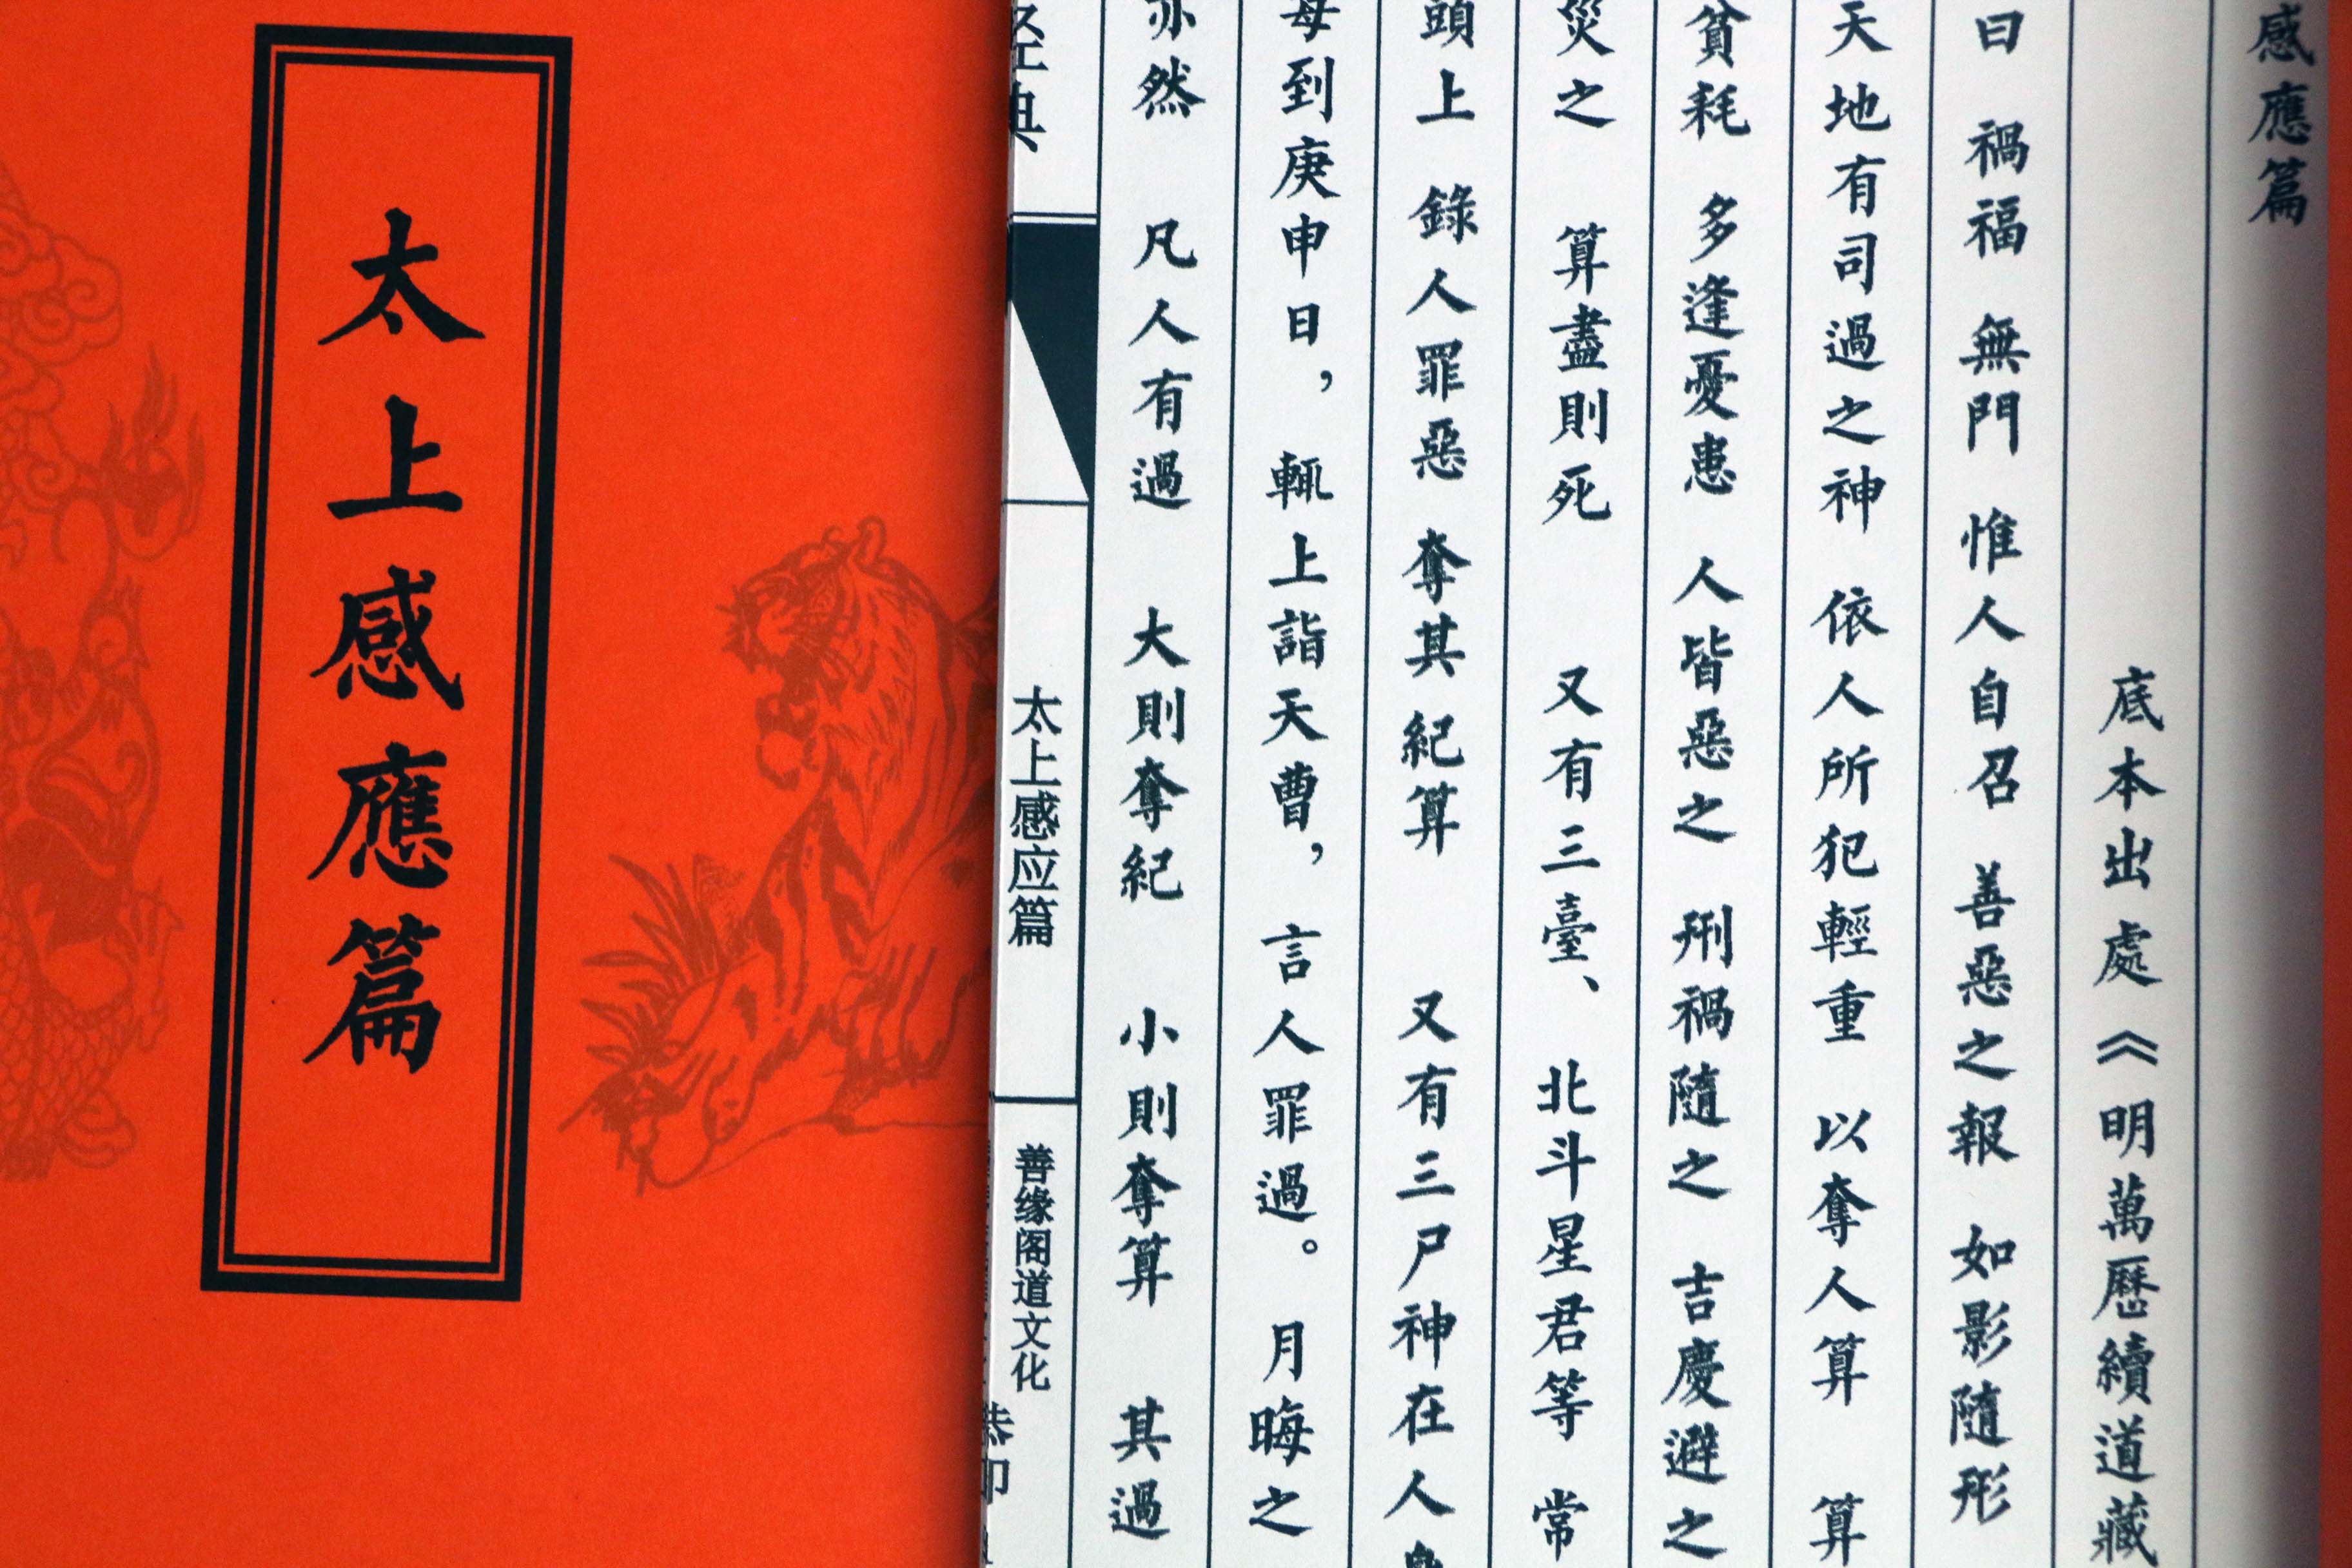 太上感應篇
感應篇
底本出處《明萬曆續道藏
曰 禍福 無門 惟人自召 善惡之報 如影隨形
天地有司過之神 依人所犯輕重 以奪人算 算
貧耗 多逢憂患 人皆惡之 刑禍隨之 吉慶避之
災之 算盡則死 又有三臺、北斗星君等 常
頭上 錄人罪惡 奪其紀算 又有三尸神在人身
每到庚申日，輒上詣天曹，言人罪過。月晦之
亦然 凡人有過 大則奪紀 小則奪算 其過
经典
太上感应篇
善缘阁道文化
恭印